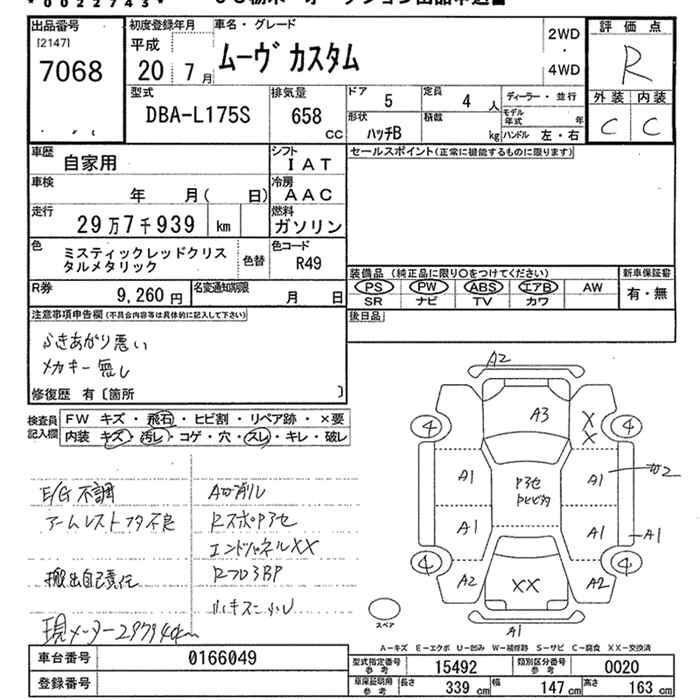 *0022743*
出品番号
[2147]
7068
初度登録年月
平成
20 7月
車名・グレード
ムーヴ カスタム
2WD
・
4WD
評価点
R
外装 内装
C C
型式
DBA-L175S
排気量
658
CC
ドア
5
定員
4人
ディーラー・並行
形状
ハッチB
積載
kg
モデル年式 年
ハンドル 左・右
車歴
自家用
シフト
IAT
セールスポイント(正常に機能するものに限ります)
車検
年 月( 日)
冷房
AAC
走行
29万7千939 km
燃料
ガソリン
色
ミスティックレッドクリス
タルメタリック
色替
色コード
R49
R券
9,260円
名変通知期限
月 日
装備品 (純正品に限り○をつけてください)
PS PW ABS エアB AW
SR ナビ TV カワ
新車保証書
有・無
後日品
注意事項申告欄(不具合内容等は具体的に記入して下さい)
ふきあがり悪い
メカキー無し
修復歴 有〔箇所 〕
検査員
記入欄
FW キズ・飛石・ヒビ割・リペア跡・×要
内装 キズ・汚レ・コゲ・穴・スレ・キレ・破レ
E/G不調
アームレストフタ不良
搬出自己責任
現メーター297940km
A切削レ
RスポPヌセ
エンドパネルXX
小キズ小凹
A2
A3
X
X
4
4
A1
A1
A1
A1
A1
4
4
A2
XX
A2
A1
スペア
A-キズ E-エクボ U-凹み W-補修跡 S-サビ C-腐食 XX-交換済
車台番号
0166049
登録番号
型式指定番号
参考
15492
類別区分番号
参考
0020
車庫証明用
参考
長さ
339 cm
幅
147 cm
高さ
163 cm